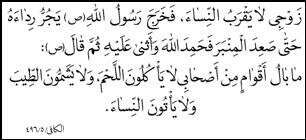 زَوْجِي لَا يَقْرَبُ النِّسَاءَ، فَخَرَجَ رَسُولُ اللهِ (ص) يَجُرُّ رِدَاءَهُ
حَتَّى صَعِدَ الْمِنْبَرَ فَحَمِدَ اللهَ وَأَثْنَى عَلَيْهِ ثُمَّ قَالَ (ص):
مَا بَالُ أَقْوَامٍ مِنْ أَصْحَابِي لَا يَأْكُلُونَ اللَّحْمَ، وَلَا يَشَمُّونَ الطِّيبَ
وَلَا يَأْتُونَ النِّسَاءَ.
الكافي/٥/٤٩٦